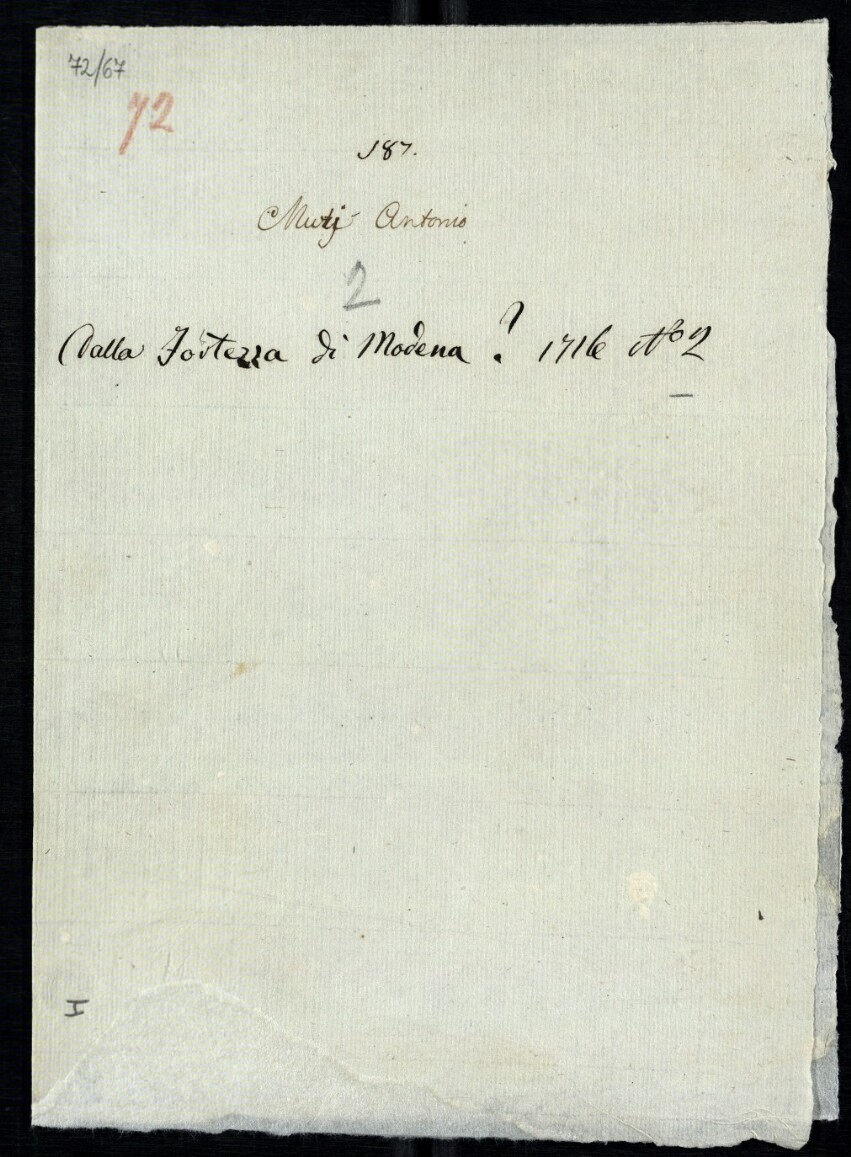 72/67
72
187.
Mutj Antonio
2
Dalla Fortezza di Modena ? 1716 No 2
I